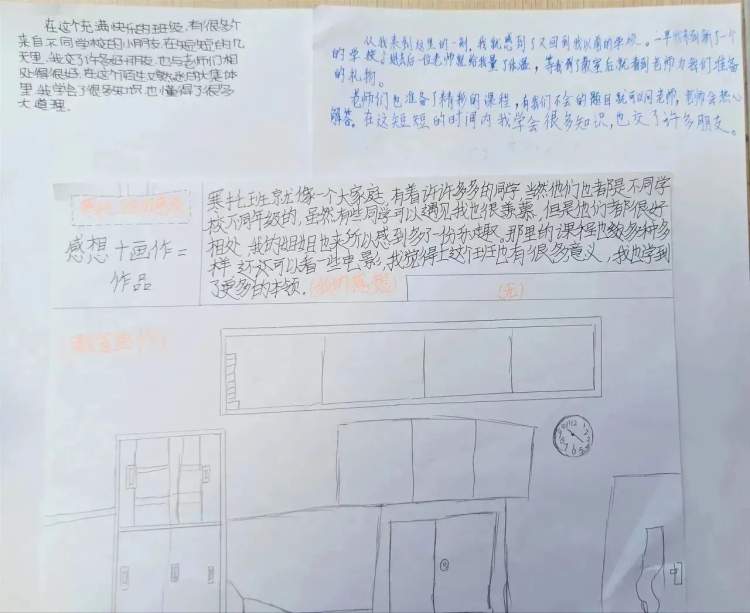 在这个充满快乐的班级,有很多个
来自不同学校的小朋友,在短短的几
天里,我交了许多好朋友,也与老师们相
处得很好,在这个团结友爱的大集体
里,我学会了很多知识,也懂得了很多
大道理.
从我来到这里的一刻,我就感到了又回到我以前的学校。一早
的学校,
老师就给我量了体温,等我到了教室后就看到老师为我们准备
的礼物。
老师们也准备了精彩的课程,有我们不会的题目就可以问老师,老师会热心
解答。在这短短的时间内我学会很多知识,也交了许多朋友。
寒托班就像一个大家庭,有着许许多多的同学,当然他们也都是不同学
校不同年级的,虽然有些同学可以遇见我也很羡慕,但是他们都很好
相处,我的姐姐也来所以感到多了一份乐趣。那里的课程也数多种多
样,还可以看一些电影,我觉得上这个班也有很多意义,我也学到
了更多的本领.
(我的感想)
(完)
感想+画作=
作品